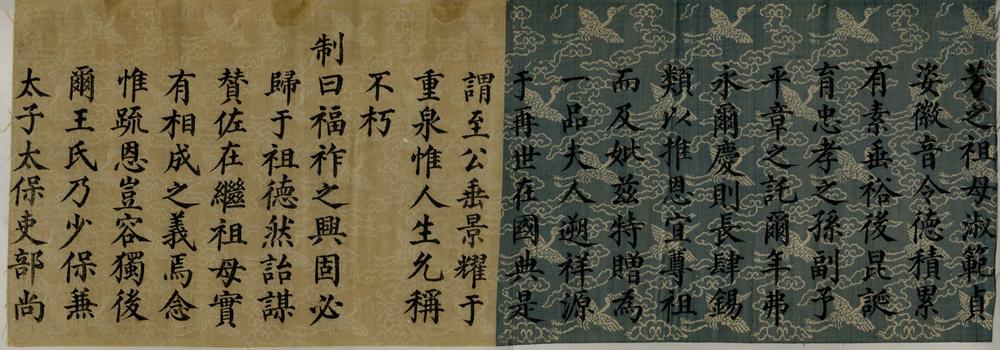 芳之祖母淑範貞
姿徽音令德積累
有素垂裕後昆誕
育忠孝之孫副予
平章之託爾年弗
永爾慶則長肆錫
類以推恩宜尊祖
而及妣茲特贈為
一品夫人遡祥源
于再世在國典是
謂至公垂景耀于
重泉惟人生允稱
不朽
制曰福祚之興固必
歸于祖德然詒謀
賛佐在繼祖母實
有相成之義焉念
惟疏恩豈容獨後
爾王氏乃少保兼
太子太保吏部尚